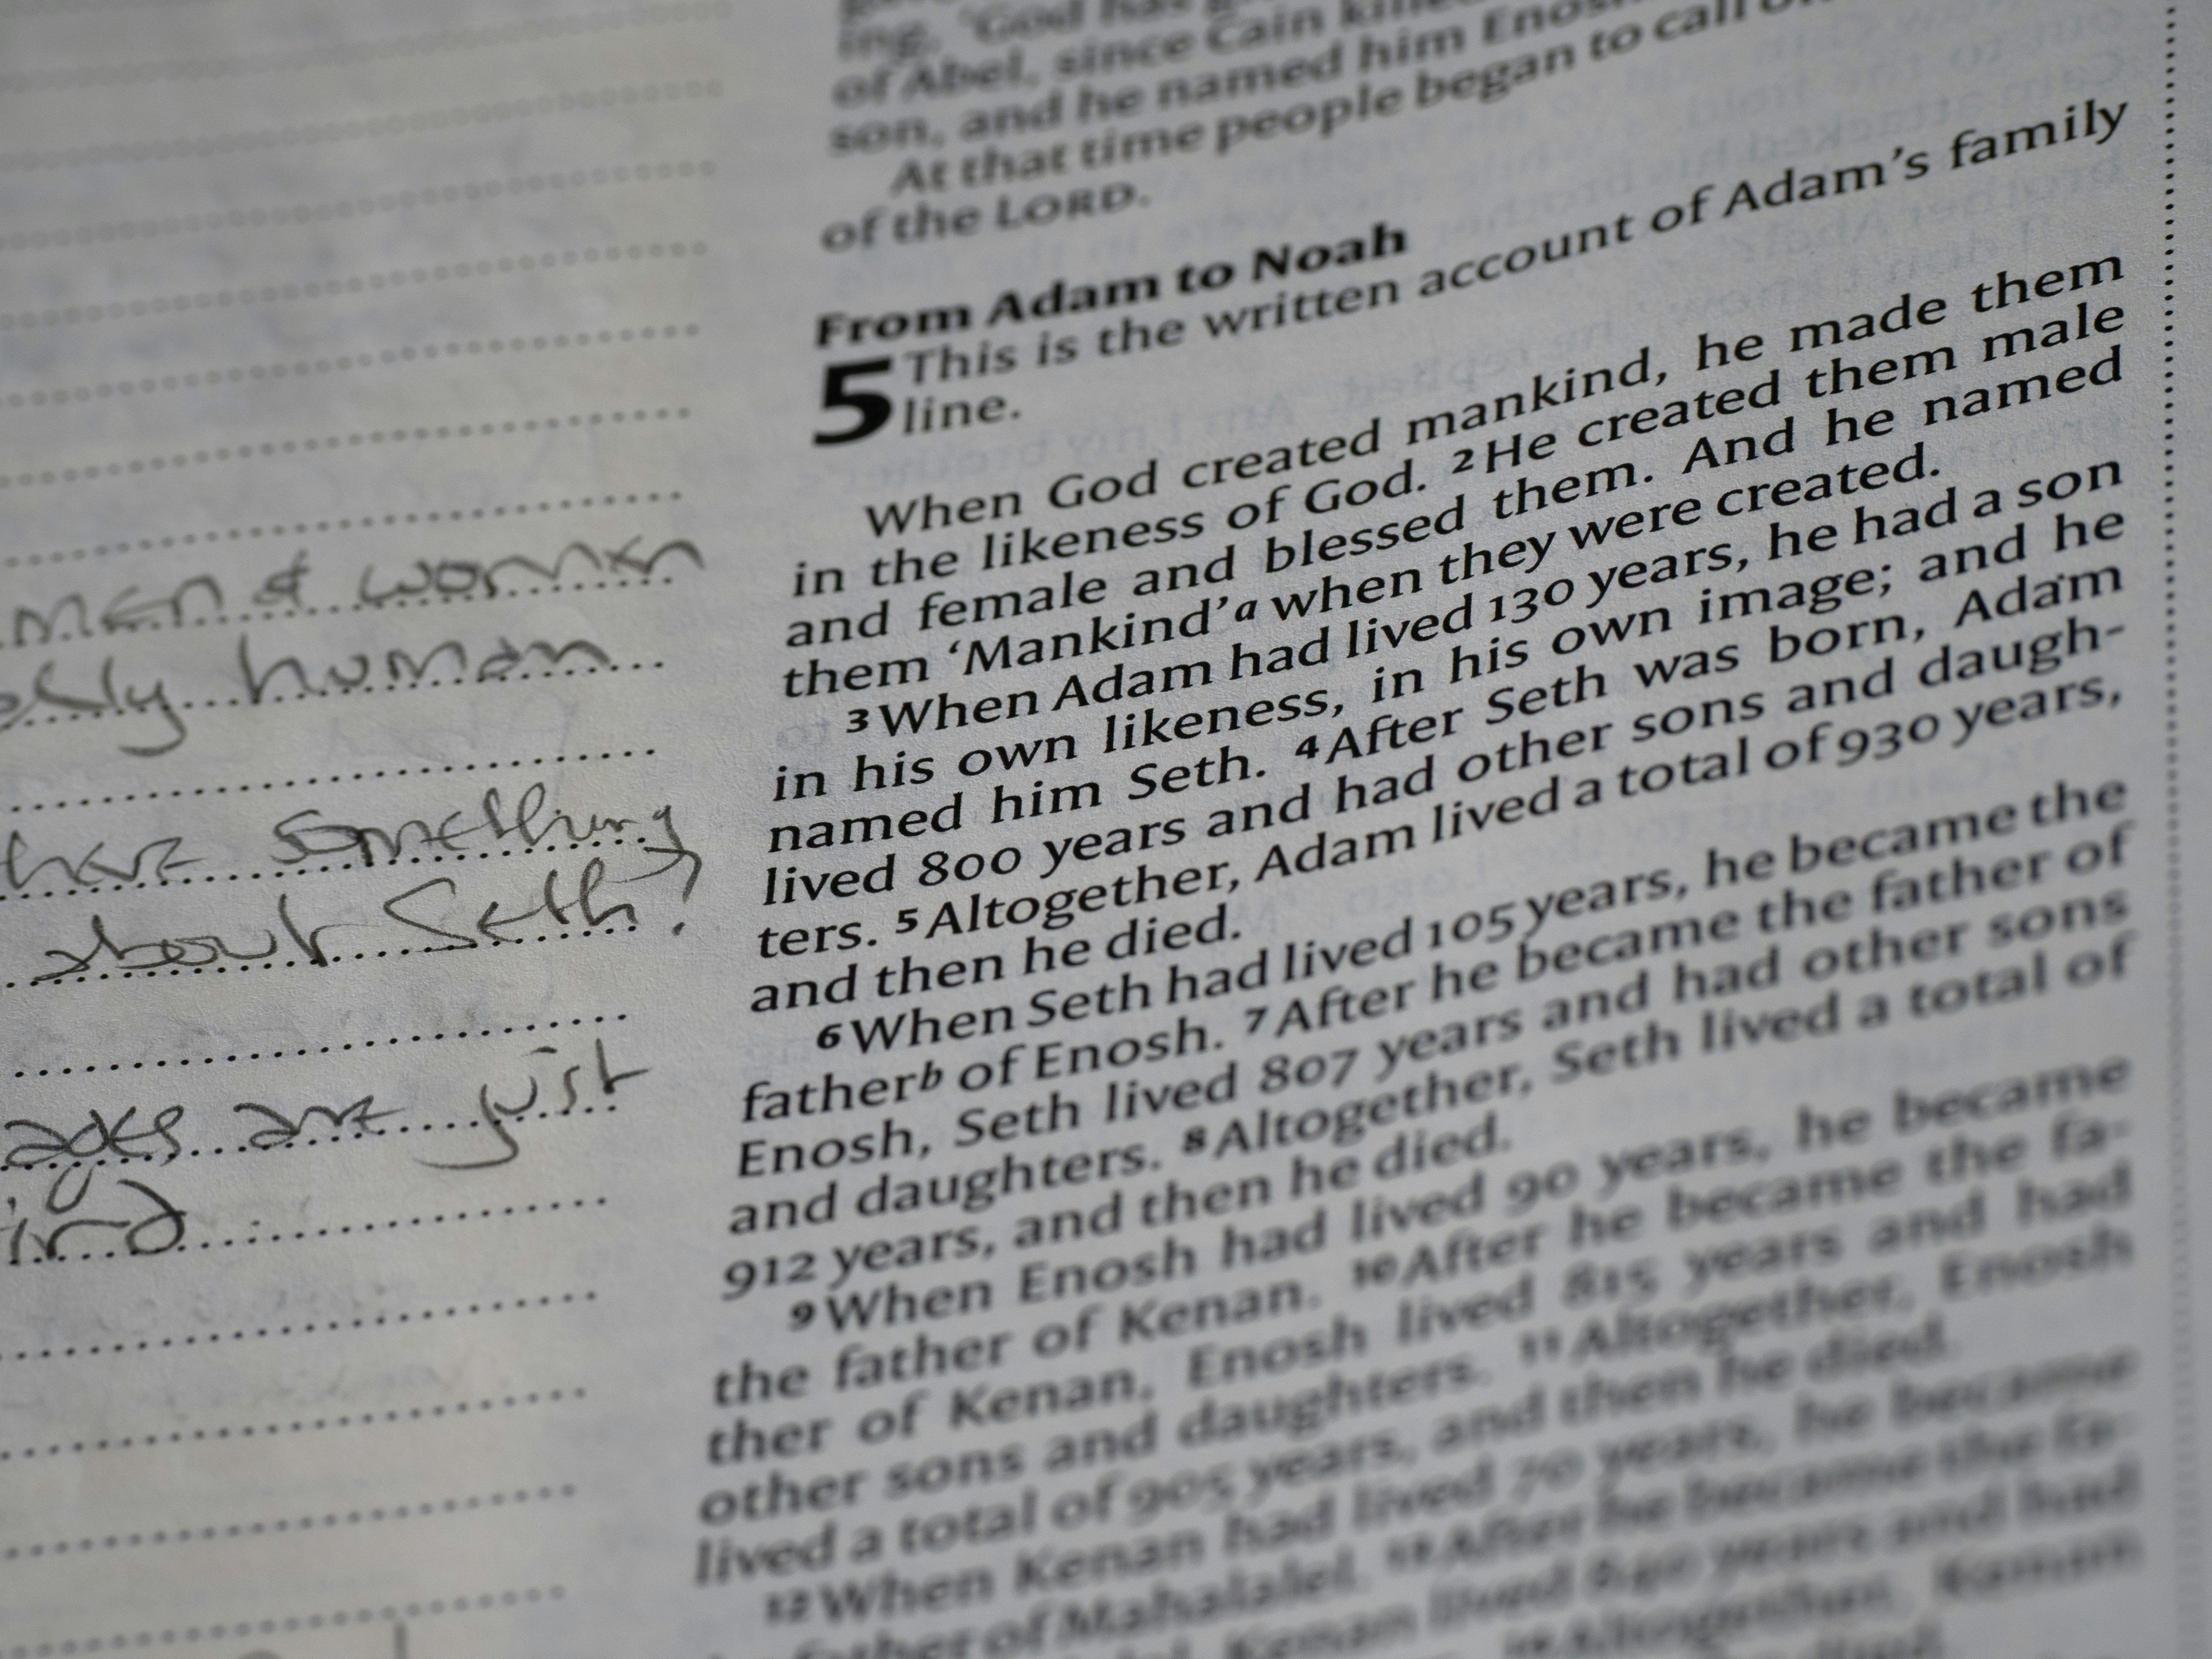 men & women
human
have something
about Seth?
ages are just
ing, 'God has
of Abel, since Cain killed
son, and he named him Enosh
At that time people began to call on
of the LORD.
From Adam to Noah
5 This is the written account of Adam's family
line.
When God created mankind, he made them
in the likeness of God. 2 He created them male
and female and blessed them. And he named
them 'Mankind'a when they were created.
3 When Adam had lived 130 years, he had a son
in his own likeness, in his own image; and he
named him Seth. 4 After Seth was born, Adam
lived 800 years and had other sons and daugh-
ters. 5 Altogether, Adam lived a total of 930 years,
and then he died.
6 When Seth had lived 105 years, he became the
fatherb of Enosh. 7 After he became the father of
Enosh, Seth lived 807 years and had other sons
and daughters. 8 Altogether, Seth lived a total of
912 years, and then he died.
9 When Enosh had lived 90 years, he became
the father of Kenan. 10 After he became the fa-
ther of Kenan, Enosh lived 815 years and had
other sons and daughters. 11 Altogether, Enosh
lived a total of 905 years, and then he died.
12 When Kenan had lived 70 years, he became
father of Mahalalel. 13 After he became the fa-
Kenan lived 840 years and had
14 Altogether, Kenan
died.